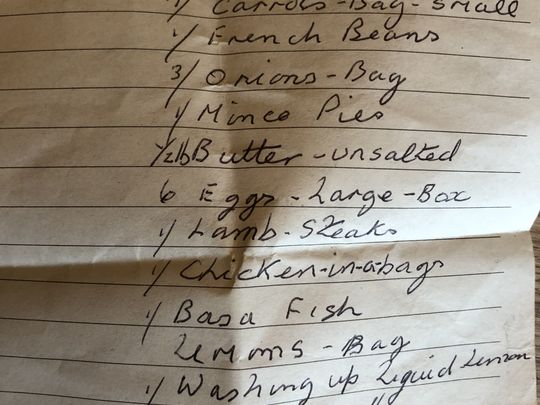 1/ Carrots-Bag-small
1/ French Beans
3/ Onions-Bag
1/ Mince Pies
1/2lb Butter-unsalted
6 Eggs-Large-Box
1/ Lamb-Steaks
1/ Chicken-in-a-bags
1/ Basa Fish
Lemons-Bag
1/ Washing up Liquid Lemon